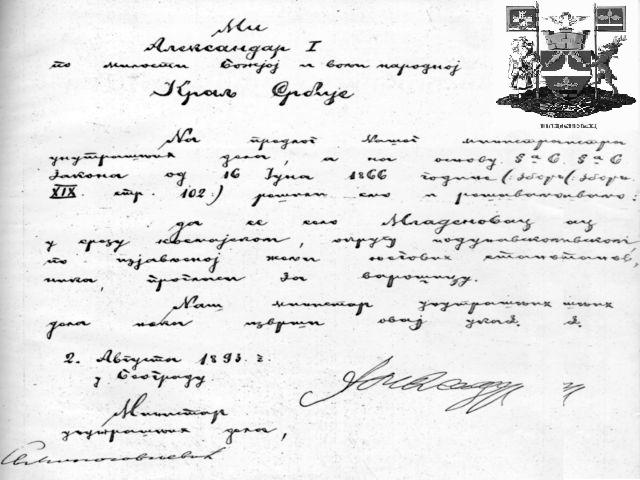 Ми
Александар I
по милости Божјој и вољи народној
Краљ Србије
На предлог нашег министра
унутрашњих дела, а на основу § 6.
Закона од 16 Јуна 1866 године (: Зборн.
XIX. стр. 102:) решили смо и решавамо:
да се село Младеновац
у срезу космајском, округу подунавском,
по изјављеној жељи његових становника,
прогласи за варошицу.
Наш министар унутрашњих
дела нека изврши овај указ.
2. Августа 1893. г.
у Београду
Министар
унутрашњих дела,